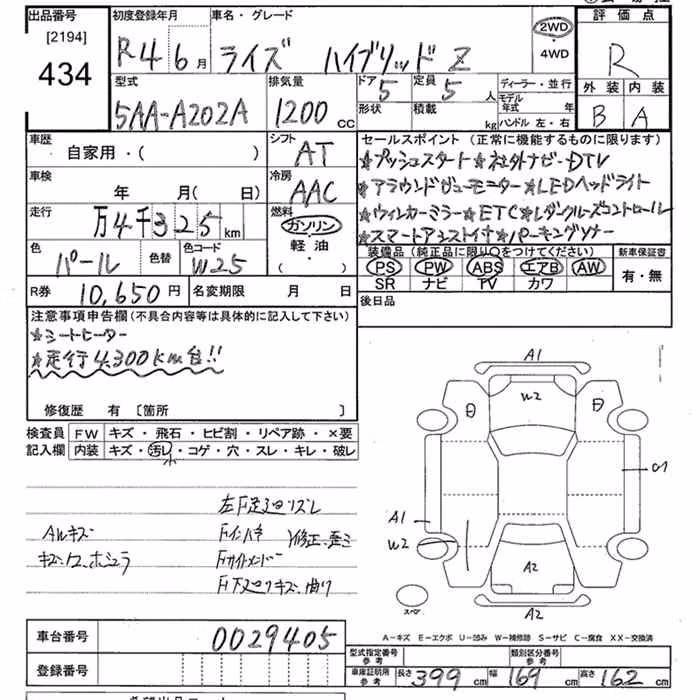 出品番号 初度登録年月 車名・グレード 評価点
[2194] 2WD
434 R4 6月 ライズ ハイブリッド Z ・4WD R
型式 排気量 ドア 5 定員 5人 ディーラー・並行 外装 内装
5AA-A202A 1200cc 形状 積載 kg モデル年式 年 B A
ハンドル 左・右
車歴 シフト セールスポイント (正常に機能するものに限ります)
自家用・( ) AT ★プッシュスタート★社外ナビ-DTV
車検 冷房 ★アラウンドビューモニター★LEDヘッドライト
年 月(日) AAC ★ウィンカーミラー★ETC★レダクルーズコントロール
走行 燃料 ★スマートアシスト★パーキングソナー
万4千325km ガソリン
色 色替 色コード 軽油 装備品(純正品に限り○をつけてください) 新車保証書
パール W25 ・( ) PS PW ABS エアB AW 有・無
SR ナビ TV カワ
R券 10,650円 名変期限 月 日 後日品
注意事項申告欄(不具合内容等は具体的に記入して下さい)
★シートヒーター
★走行4,300km台!!
修復歴 有 [箇所 ]
検査員 FW キズ・飛石・ヒビ割・リペア跡・×要
記入欄 内装 キズ・汚レ・コゲ・穴・スレ・キレ・破レ
A1
W2
G1
A1
W2
A2
スペア
A2
ALキズ
A-キズ E-エクボ U-凹み W-補修跡 S-サビ C-腐食 XX-交換済
車台番号 0029405 型式指定番号 参考 類別区分番号 参考
登録番号 車庫証明用 参考 長さ 399cm 幅 169cm 高さ 162cm